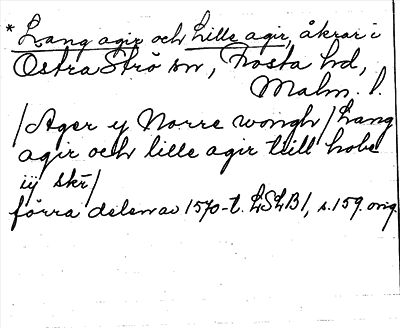 * Lang agir och Lille agir, åkrar i
Östra Strö sn, Frosta hd,
Malm. l.
/Ager y Norre wongh/ Lang
agir och lille agir till hobe
iij skr/
förra delen av 1570-t. LSLB1, s. 159. orig.